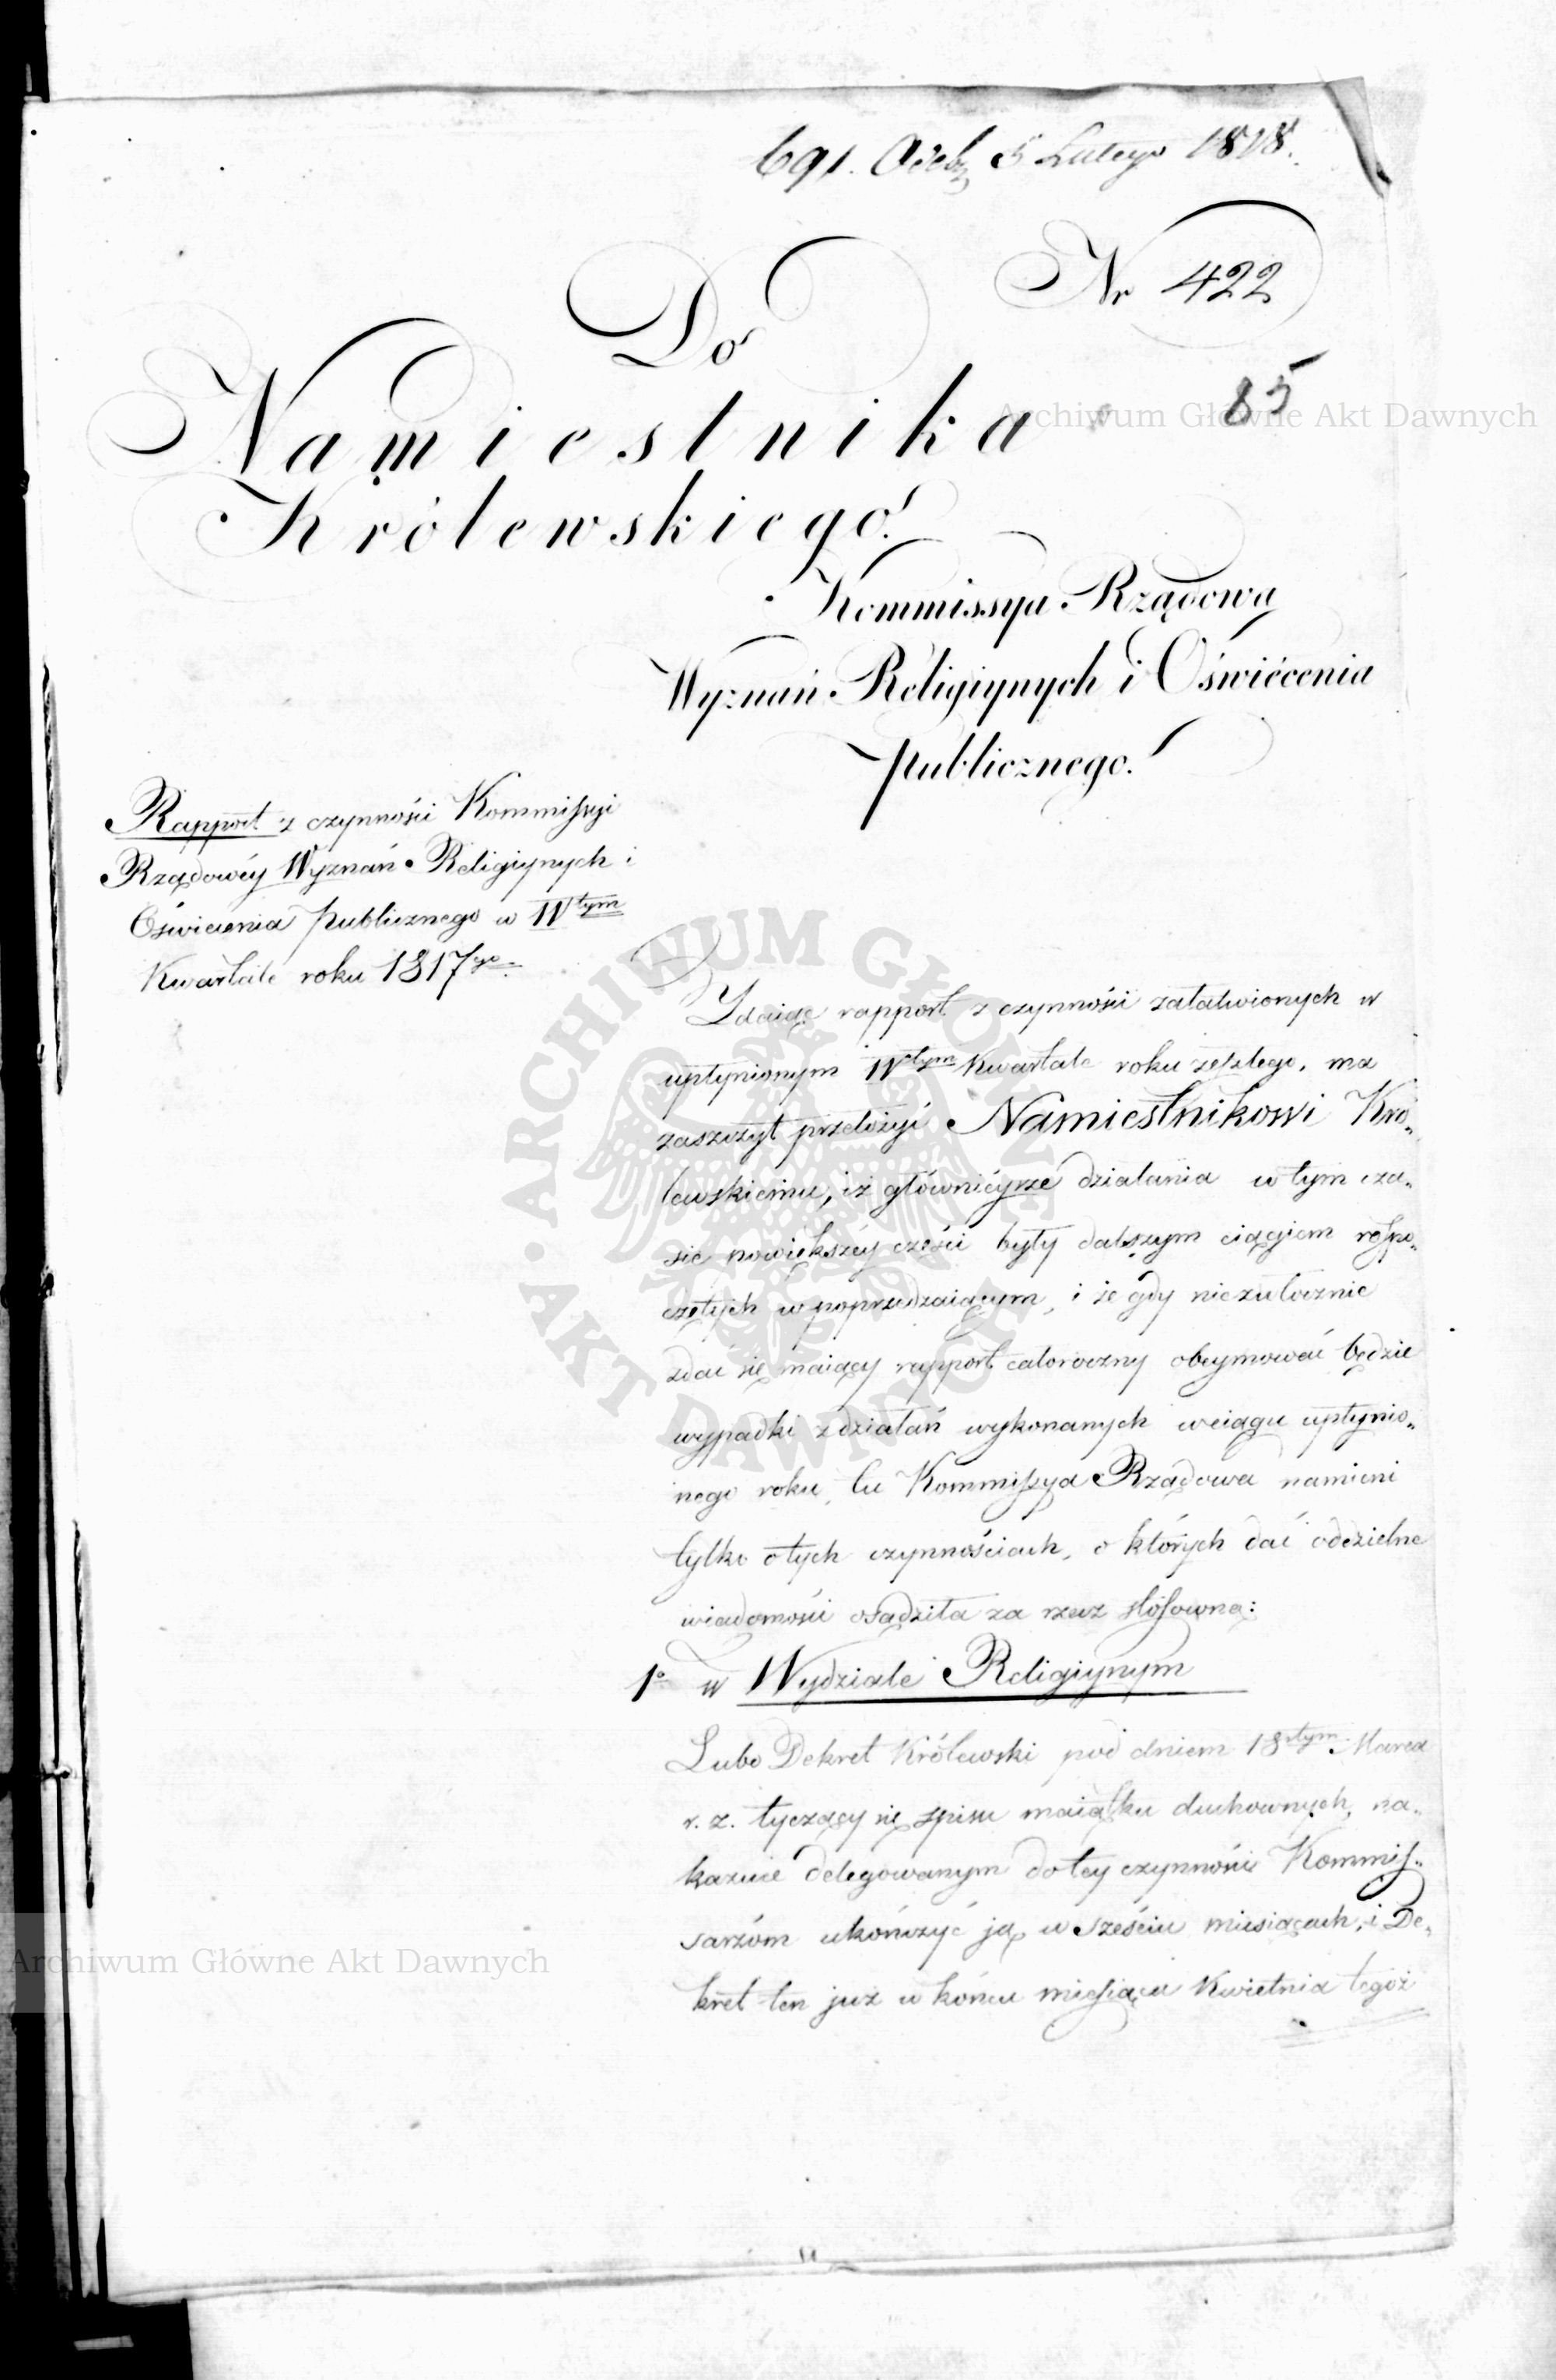 691. Odeb. 5 Lutego 1818.
Nr 422
Do
85
Archiwum Główne Akt Dawnych
Namiestnika
Królewskiego.
Kommissya Rządowa
Wyznań Religiynych i Oświécenia
publicznego.
Rapport z czynności Kommissyi
Rządowéy Wyznań Religiynych i
Oświecenia publicznego w IVtym
Kwartale roku 1817go.
Zdaiąc rapport z czynności załatwionych w
upłynionym IVtym Kwartale roku zeszłego, ma
zaszczyt przełożyć Namiestnikowi Kró„
lewskiemu, iż głównieysze działania w tym cza„
sie nowiększéy części były dalszym ciągiem rospo„
czętych w poprzedzaiącym, i że gdy niezwłocznie
zdać się maiący rapport całoroczny obeymować będzie
wypadki z działań wykonanych wciągu upłynio„
nego roku, tu Kommissya Rządowa namieni
tylko o tych czynnościach, o których dać oddzielne
wiadomości osądziła za rzecz stosowną:
1o w Wydziale Religiynym
Lubo Dekret Królewski pod dniem 18stym Marca
r. z. tyczący się spisu maiątku duchownych, na„
kazuie delegowanym do tey czynności Kommis„
sarzóm ukończyć ją w sześciu miesiącach, i De„
kret ten już w końcu miesiąca Kwietnia tegoż
Archiwum Główne Akt Dawnych
ARCHIWUM GŁÓWNE
AKT DAWNYCH